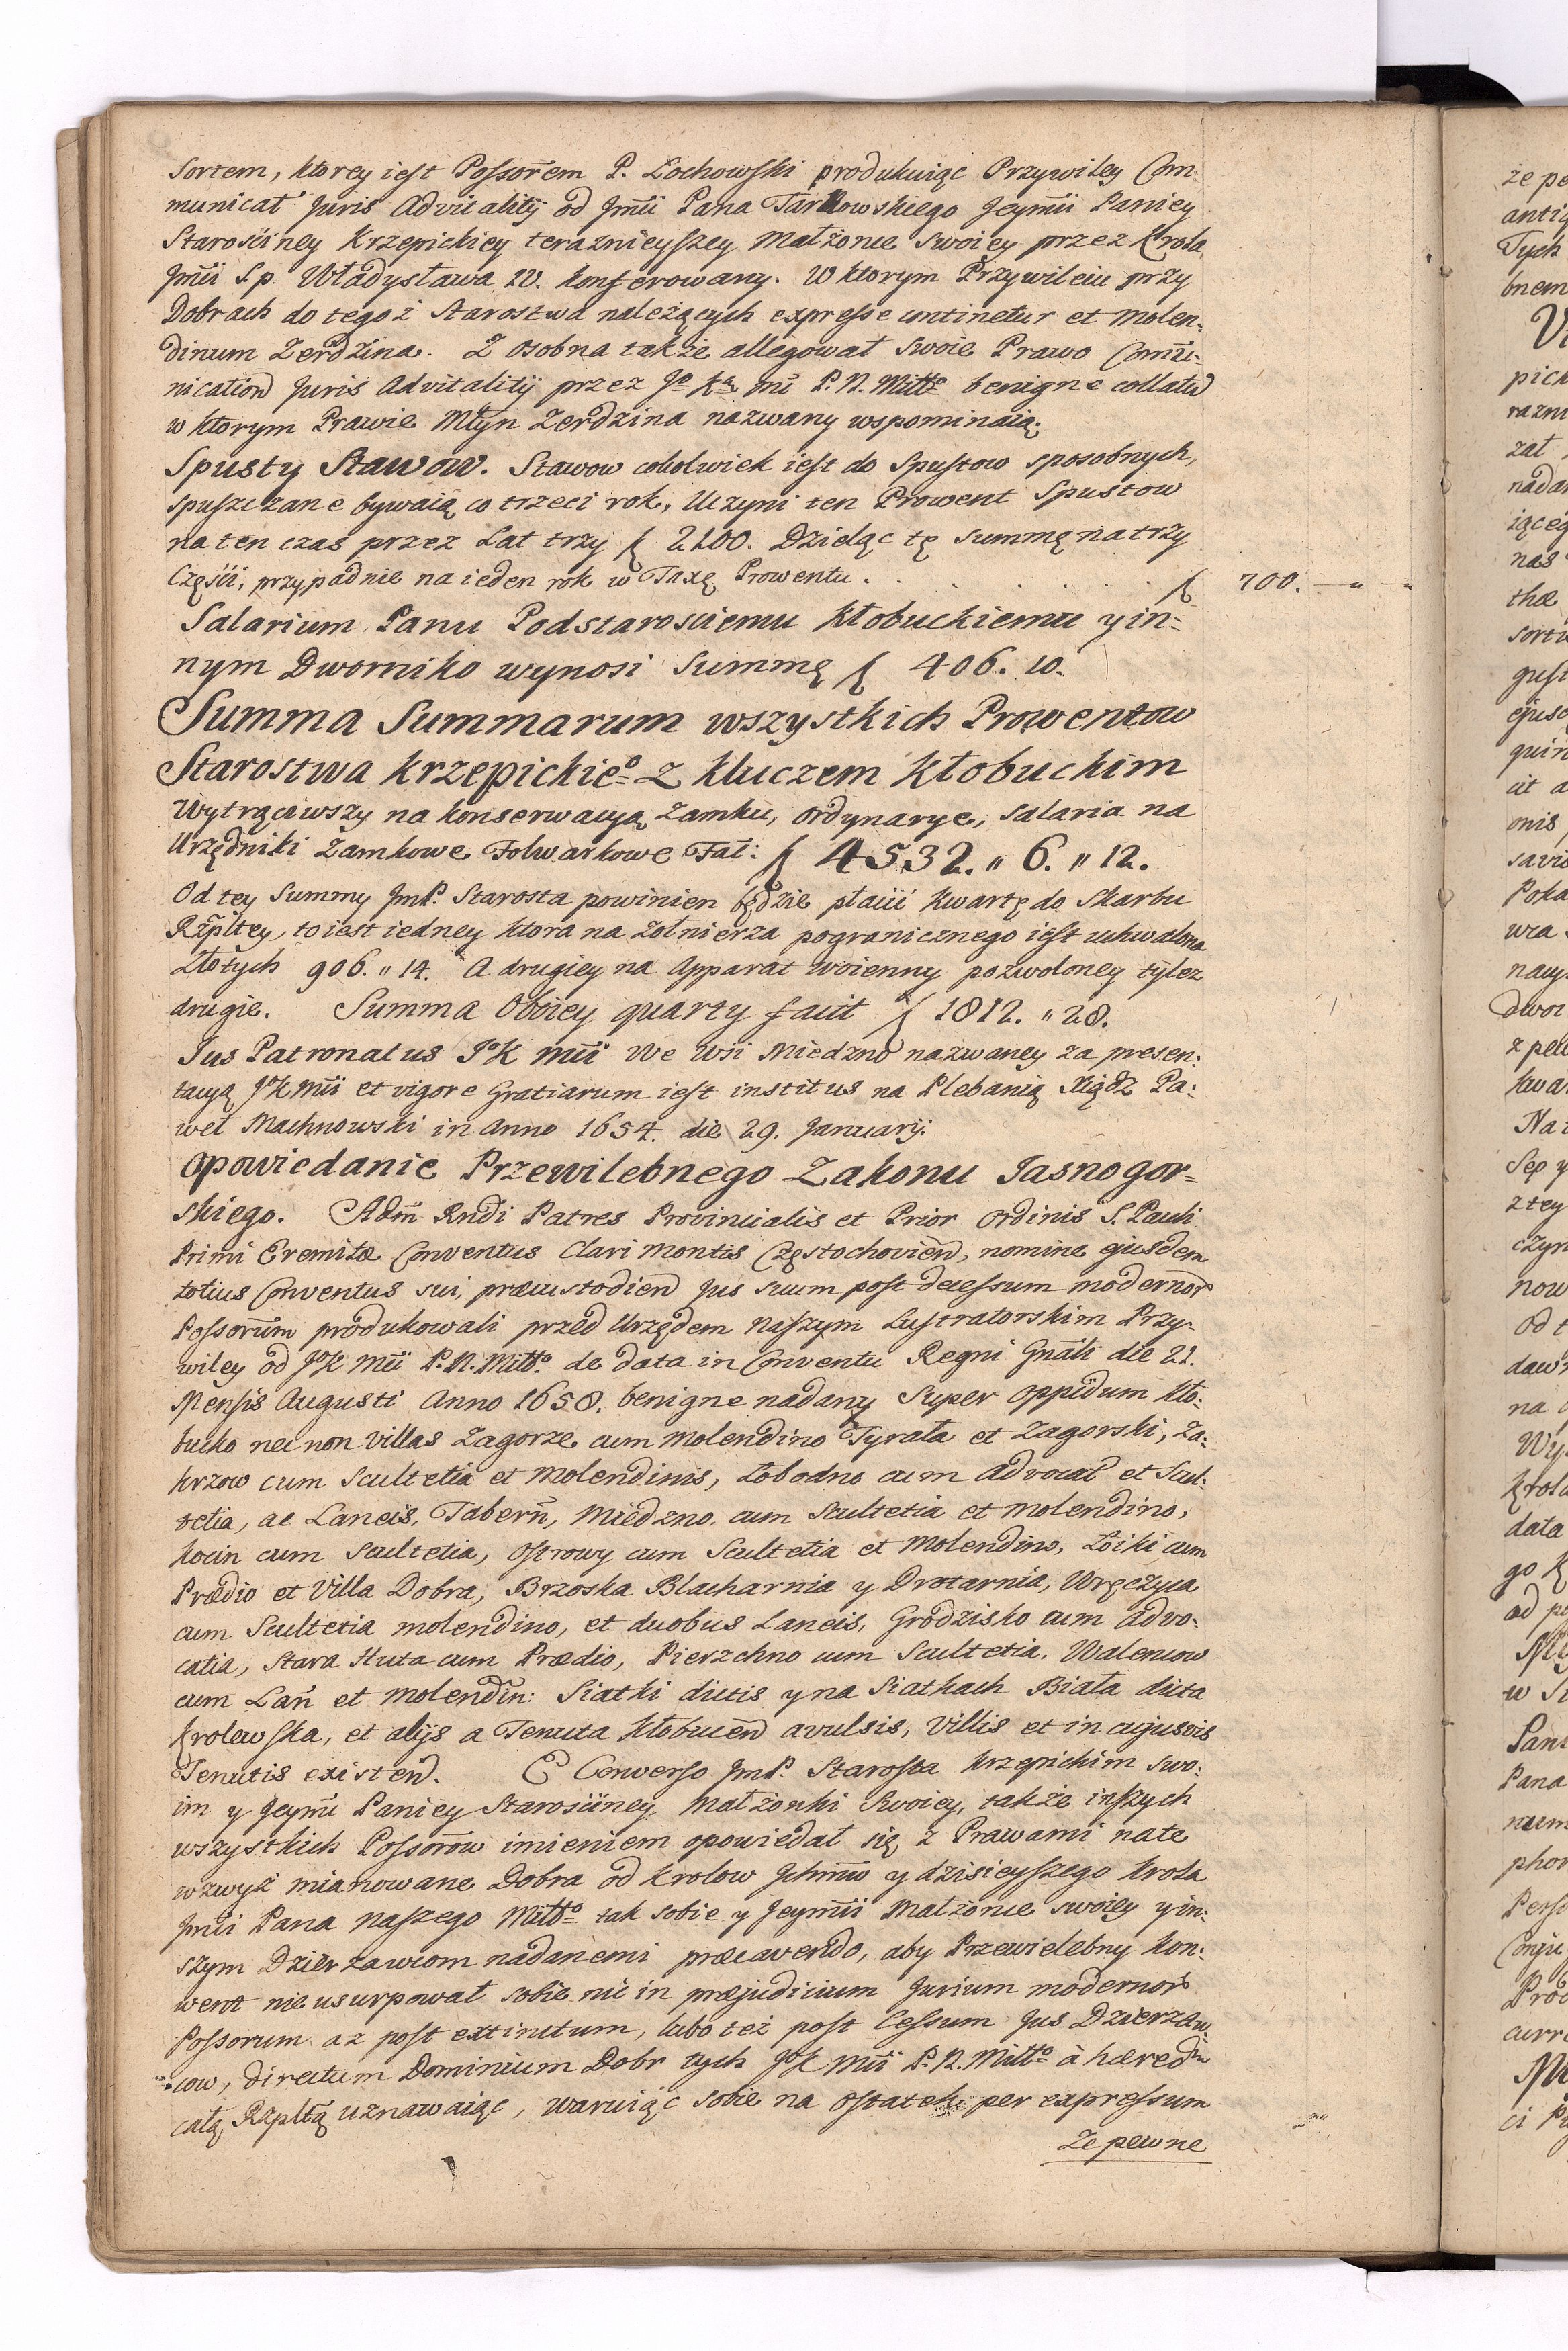 Sortem, ktorey iest Possorem P. Łochowski produkuiąc Przywiley Com:
municat Juris Advitalitij od Jmći Pana Tarnowskiego Jeymći Paniey
Starościney Krzepickiey teraznieyszey Małżonce swoiey przez Krola
Jmći S.p. Władysława IV. konferowany. W ktorym Przywileiu przy
Dobrach do tegoż Starostwa należących expresse continetur et Molen:
dinum Zerdzina. Z osobna także allegował swoie Prawo Comu:
nication Juris Advitalitij przez Jo Ka mć P. N. Miłłō benigne collatū
w ktorym Prawie Młyn Zerdzina nazwany wspominaią.
Spusty Stawow. Stawow cokolwiek iest do Spustow sposobnych,
spuszczane bywaią co trzeci rok, Uczyni ten Prowent Spustow
na ten czas przez Lat trzy f 2100. Dzieląc tę Summę na trzy
Części, przypadnie na ieden rok w Taxę Prowentu . . . . . f 700. — " — "
Salarium Panu Podstarosciemu Kłobuckiemu y in:
nym Dworniko wynosi Summę f 406. 10.
Summa Summarum wszystkich Prowentow
Starostwa Krzepickieo Z Kluczem Kłobuckim
Wytrąciwszy na konserwacyą Zamku, ordynarye, salaria na
Urzędniki Zamkowe Folwarkowe Fat: f 4532. " 6. " 12.
Od tey Summy JmP. Starosta powinien będzie płacić kwartę do Skarbu
Rzpltey, to iest iedney ktora na Żołnierza pogranicznego iest uchwalona
Złotych 906. " 14. A drugiey na Apparat woienny pozwoloney tylez
drugie. Summa Oboiey quarty facit f 1812. " 28.
Jus Patronatus JoK Mći We Wsi Miedzno nazwaney za presen:
tacyą JoK Mći et vigore Gratiarum iest institus na Plebanią Xiądz Pa:
weł Machnowski in Anno 1654. die 29. Januarij.
Opowiedanie Przewilebnego Zakonu Jasnogor=
skiego. Adm Rndi Patres Provincialis et Prior Ordinis S. Pauli
Primi Eremitæ Conventus Clari Montis Częstochovien, nomine ejusdem
totius Conventus sui, præcustodien Jus suum post decessum modernor
Possorum produkowali przed Urzędem Naszym Lustratorskim Przy-
wiley od JoK Mći P. N. Miłłō. de data in Conventu Regni Gnali die 21.
Mensis Augusti Anno 1658. benigne nadany Super oppidum Kło:
bucko nec non villas Zagorze cum molendino Tyrała et Zagorski, Za:
krzow cum Scultetia et Molendinis, Łobodno cum Advocat et Scul:
tetia, ac Laneis, Tabern, Miedzno cum Scultetia et molendino,
Kocin cum Scultetia, Ostrowy cum Scultetia et Molendino, Łoiki cum
Prædio et Villa Dobra, Brzoska Blacharnia y Drotarnia, Wręczyca
cum Scultetia molendino, et duobus Laneis, Grodzisko cum Advo:
catia, Stara Huta cum Prædio, Pierzchno cum Scultetia. Walencow
cum Lan et Molendin: Siatki dictis y na Siatkach Biała dicta
Krolewska, et alijs a Tenuta Kłobucen avulsis, Villis et in cujusvis
Tenutis existen. E Converso JmP. Starosta Krzepickim swo:
im y Jeymć Paniey Starościney Małżonki Swoiey, także inszych
wszystkich Possorow imieniem opowiedał się z Prawami na te
wzwyż mianowane Dobra od Krolow Jchmciw y dzisieyszego Krola
Jmći Pana Naszego Miłłō tak sobie y Jeymći Małżonce swoiey y in:
szym Dzierzawcom nadanemi præcavendo, aby Przewielebny Kon:
went nie usurpował sobie nic in præjudicium Jurium modernor
Possorum az post extinctum, lubo też post Cessum Jus Dzierzaw:
cow, directum Dominium Dobr tych JoK Mći P. N. Miłłō à hæred
całą Rzpltą uznawaiąc, waruiąc sobie na ostatek per expressum
Ze pewne